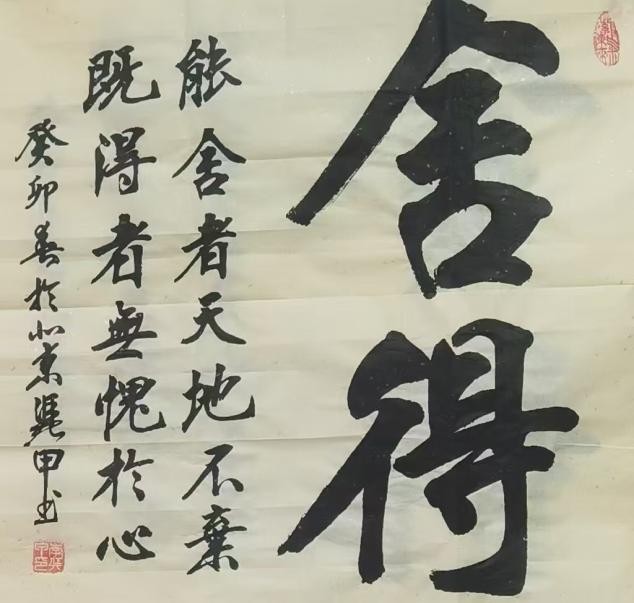 舍得
能舍者天地不棄
既得者無愧於心
癸卯春於北京㢲甲书